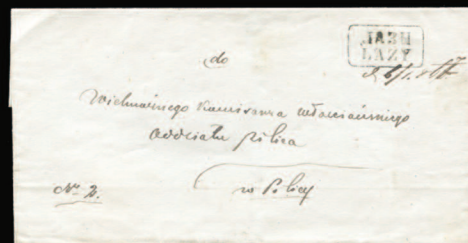 ЛАЗЫ
ŁAZY
do
Wielmożnego Komisarza włościańskiego
oddziału Pilica
w Pilicy
No 2.